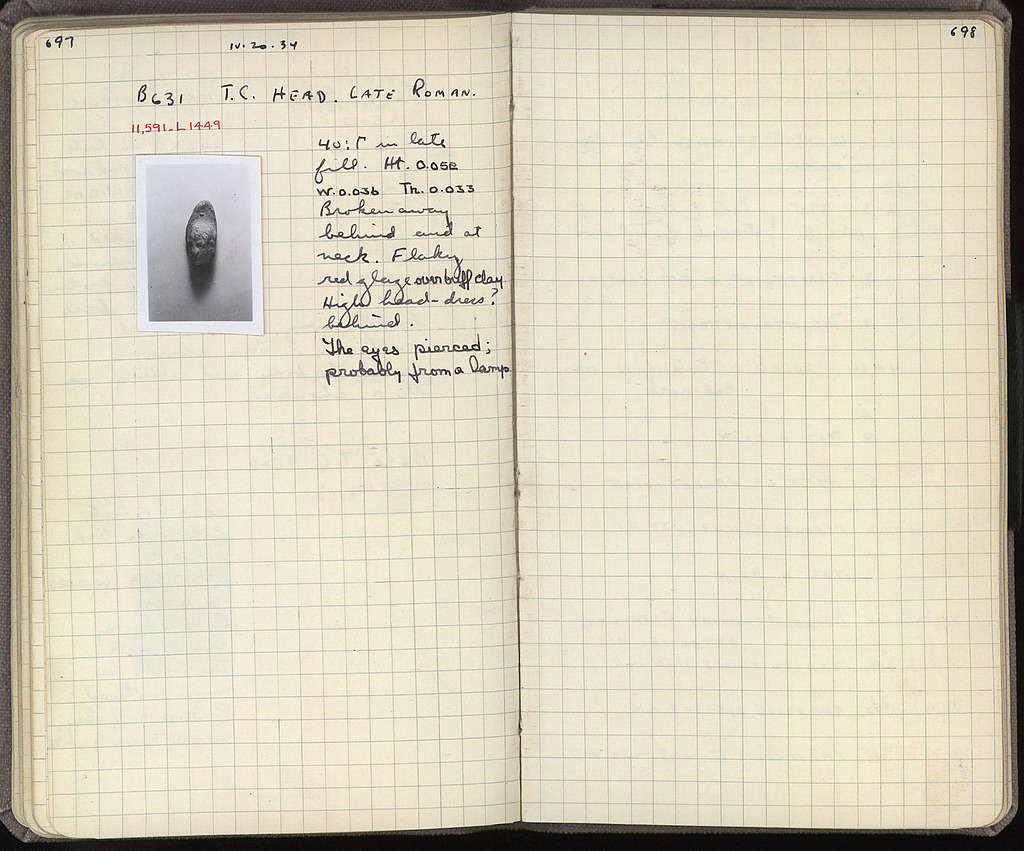 697
IV.20.34
698
B631 T.C. HEAD. LATE ROMAN.
11,591-L1449
40:Γ in late
fill. Ht. 0.052
W.0.036 Th. 0.033
Broken away
behind and at
neck. Flaky
red glaze over buff clay.
High head-dress?
behind.
The eyes pierced;
probably from a lamp.